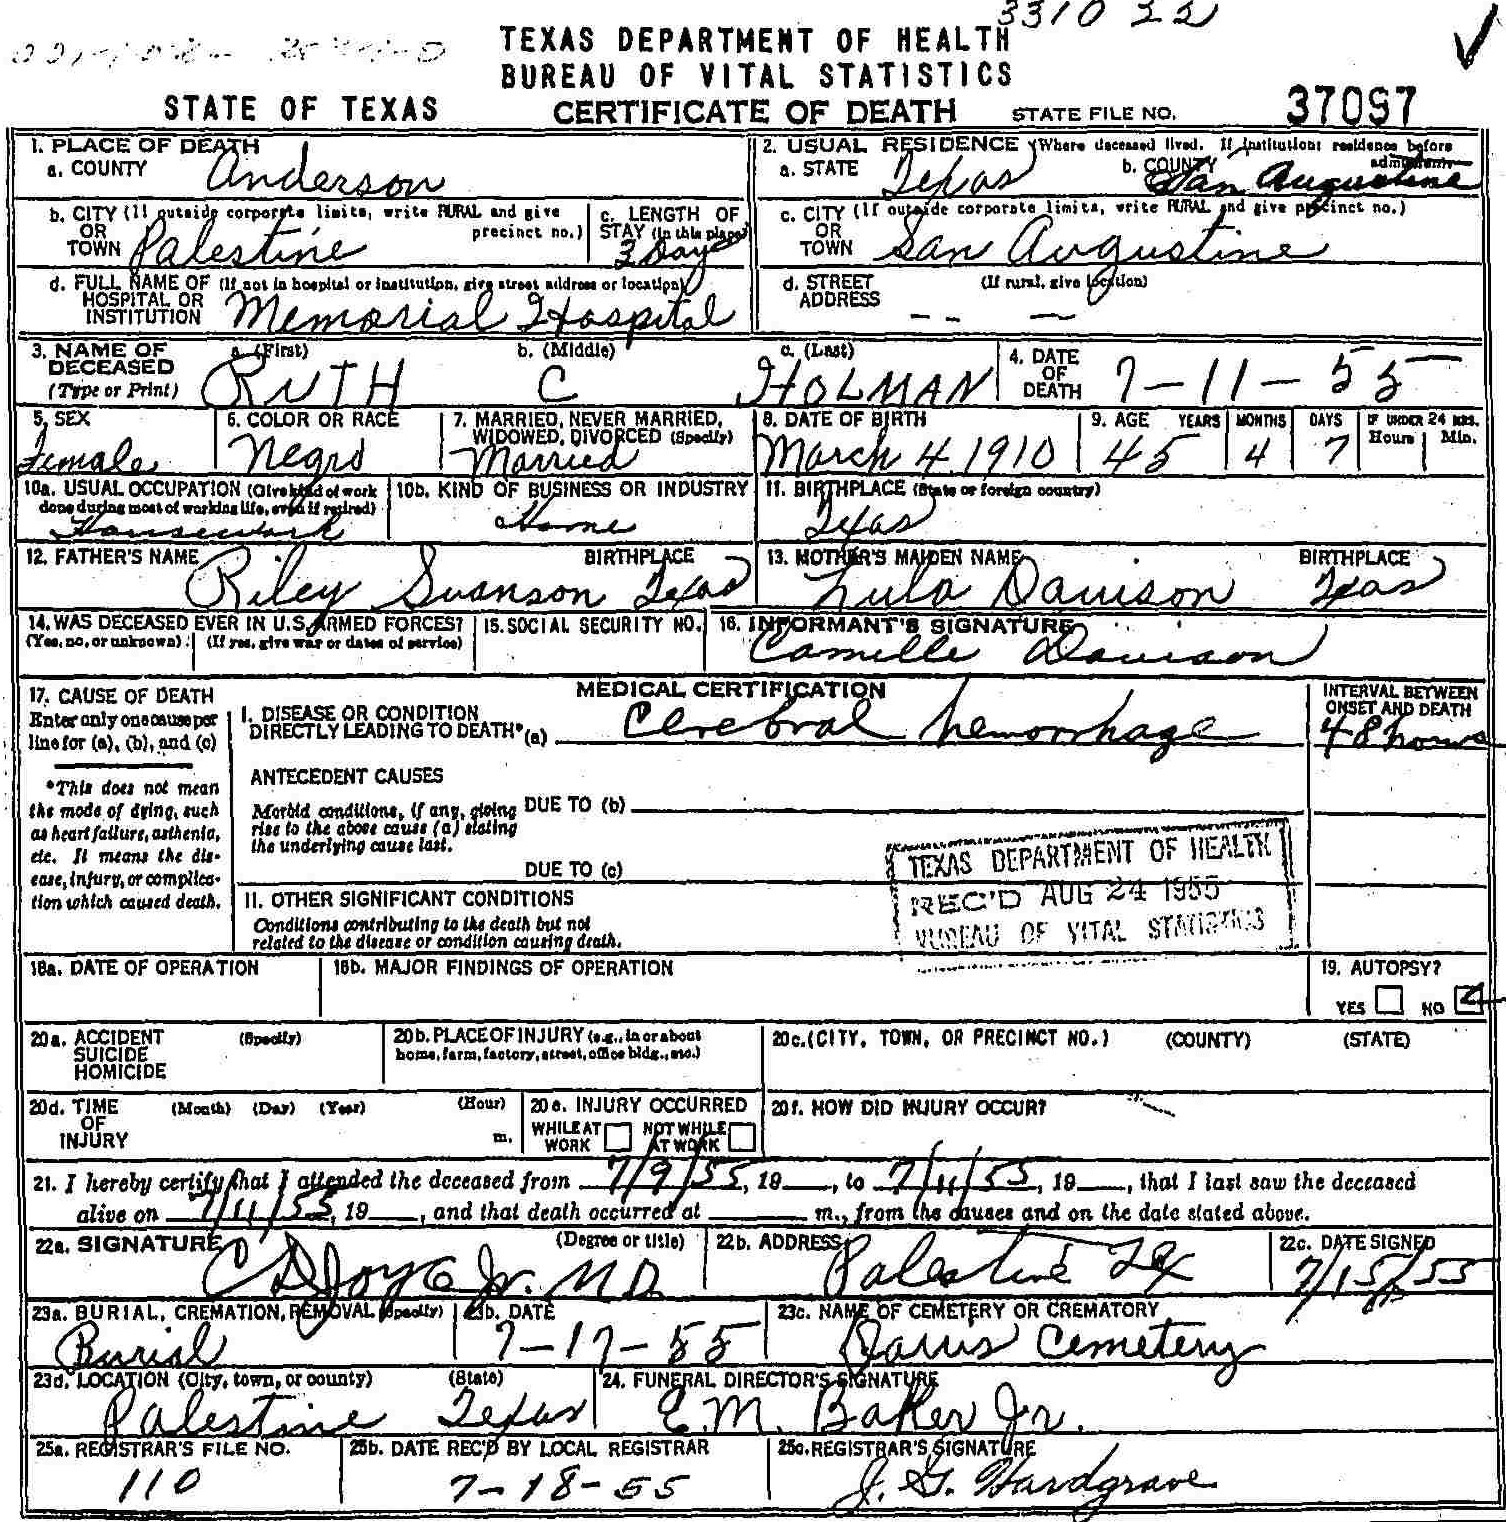 3310 22
TEXAS DEPARTMENT OF HEALTH
BUREAU OF VITAL STATISTICS
STATE OF TEXAS CERTIFICATE OF DEATH STATE FILE NO. 37097
1. PLACE OF DEATH
a. COUNTY Anderson
2. USUAL RESIDENCE (Where deceased lived. If institution: residence before admission)
a. STATE Texas b. COUNTY San Augustine
b. CITY (If outside corporate limits, write RURAL and give precinct no.)
OR
TOWN Palestine
c. LENGTH OF
STAY (in this place) 3 Days
c. CITY (If outside corporate limits, write RURAL and give precinct no.)
OR
TOWN San Augustine
d. FULL NAME OF (If not in hospital or institution, give street address or location)
HOSPITAL OR
INSTITUTION Memorial Hospital
d. STREET (If rural, give location)
ADDRESS -- -
3. NAME OF DECEASED (Type or Print)
a. (First) RUTH b. (Middle) C c. (Last) HOLMAN
4. DATE OF DEATH 7-11-55
5. SEX Female
6. COLOR OR RACE Negro
7. MARRIED, NEVER MARRIED, WIDOWED, DIVORCED (Specify) Married
8. DATE OF BIRTH March 4 1910
9. AGE YEARS 45 MONTHS 4 DAYS 7 IF UNDER 24 HRS. Hours Min.
10a. USUAL OCCUPATION (Give kind of work done during most of working life, even if retired) Housework
10b. KIND OF BUSINESS OR INDUSTRY Home
11. BIRTHPLACE (State or foreign country) Texas
12. FATHER'S NAME Riley Swanson BIRTHPLACE Texas
13. MOTHER'S MAIDEN NAME Lula Davison BIRTHPLACE Texas
14. WAS DECEASED EVER IN U.S. ARMED FORCES?
(Yes, no, or unknown) (If yes, give war or dates of service)
15. SOCIAL SECURITY NO.
16. INFORMANT'S SIGNATURE Camille Davison
17. CAUSE OF DEATH
Enter only one cause per
line for (a), (b), and (c)
*This does not mean
the mode of dying, such
as heart failure, asthenia,
etc. It means the dis-
ease, injury, or complica-
tion which caused death.
MEDICAL CERTIFICATION
I. DISEASE OR CONDITION
DIRECTLY LEADING TO DEATH* (a) Cerebral hemorrhage
INTERVAL BETWEEN
ONSET AND DEATH
48 hours
ANTECEDENT CAUSES
Morbid conditions, if any, giving
rise to the above cause (a) stating
the underlying cause last.
DUE TO (b)
DUE TO (c)
II. OTHER SIGNIFICANT CONDITIONS
Conditions contributing to the death but not
related to the disease or condition causing death.
TEXAS DEPARTMENT OF HEALTH
REC'D AUG 24 1955
BUREAU OF VITAL STATISTICS
18a. DATE OF OPERATION
18b. MAJOR FINDINGS OF OPERATION
19. AUTOPSY?
YES NO
20a. ACCIDENT (Specify)
SUICIDE
HOMICIDE
20b. PLACE OF INJURY (e.g., in or about
home, farm, factory, street, office bldg., etc.)
20c. (CITY, TOWN, OR PRECINCT NO.) (COUNTY) (STATE)
20d. TIME (Month) (Day) (Year) (Hour)
OF
INJURY m.
20e. INJURY OCCURRED
WHILE AT WORK NOT WHILE AT WORK
20f. HOW DID INJURY OCCUR?
21. I hereby certify that I attended the deceased from 7/9/55, 19__, to 7/11/55, 19__, that I last saw the deceased
alive on 7/11/55, 19__, and that death occurred at ____ m., from the causes and on the date stated above.
22a. SIGNATURE (Degree or title) Joyce Jr. M.D.
22b. ADDRESS Palestine Tex
22c. DATE SIGNED 7/15/55
23a. BURIAL, CREMATION, REMOVAL (Specify) Burial
23b. DATE 7-17-55
23c. NAME OF CEMETERY OR CREMATORY Cemetery
23d. LOCATION (City, town, or county) (State)
Palestine Texas
24. FUNERAL DIRECTOR'S SIGNATURE
E.M. Baker Jr.
25a. REGISTRAR'S FILE NO. 110
25b. DATE REC'D BY LOCAL REGISTRAR 7-18-55
25c. REGISTRAR'S SIGNATURE J. G. Hardgrave